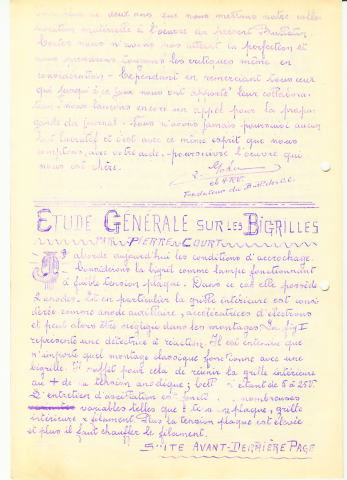 de deux ans que nous mettons notre colla-
boration à l'œuvre du présent Bulletin
Certes nous n'avons pas atteint la perfection et
nous toutes les critiques même en
considération - Cependant en remerciant tous ceux
qui jusqu'à ce jour nous ont apporté leur collabora-
tion nous lançons encore un appel pour la propa-
gande du journal - Nous n'avons jamais poursuivi aucun
but lucratif et c'est avec ce même esprit que nous
comptons, avec votre aide, poursuivre l'œuvre qui
nous est chère.
Fondateur du
ETUDE GÉNÉRALE SUR LES BIGRILLES
PAR PIERRE COURT
J'aborde aujourd'hui les conditions d'accrochage.
Considérons la bigril comme lampe fonctionnant
à faible tension plaque. Dans ce cas elle possède
2 anodes. Et en particulier la grille intérieure est consi
dérée comme anode auxiliaire, accélératrice d'électrons
et peut alors être négligée dans les montages. La fig I
représente une détectrice à réaction. Il est entendu que
n'importe quel montage classique fonctionne avec une
bigrille. Il suffit pour cela de réunir la grille intérieure
au + de la tension anodique; étant de 5 à 25V.
L'entretien d'oscillation est nombreuses
variables telles que plaque, grille
intérieure & filament. Plus la tension plaque est élevée
et plus il faut chauffer le filament.
SUITE AVANT-DERNIÈRE PAGE